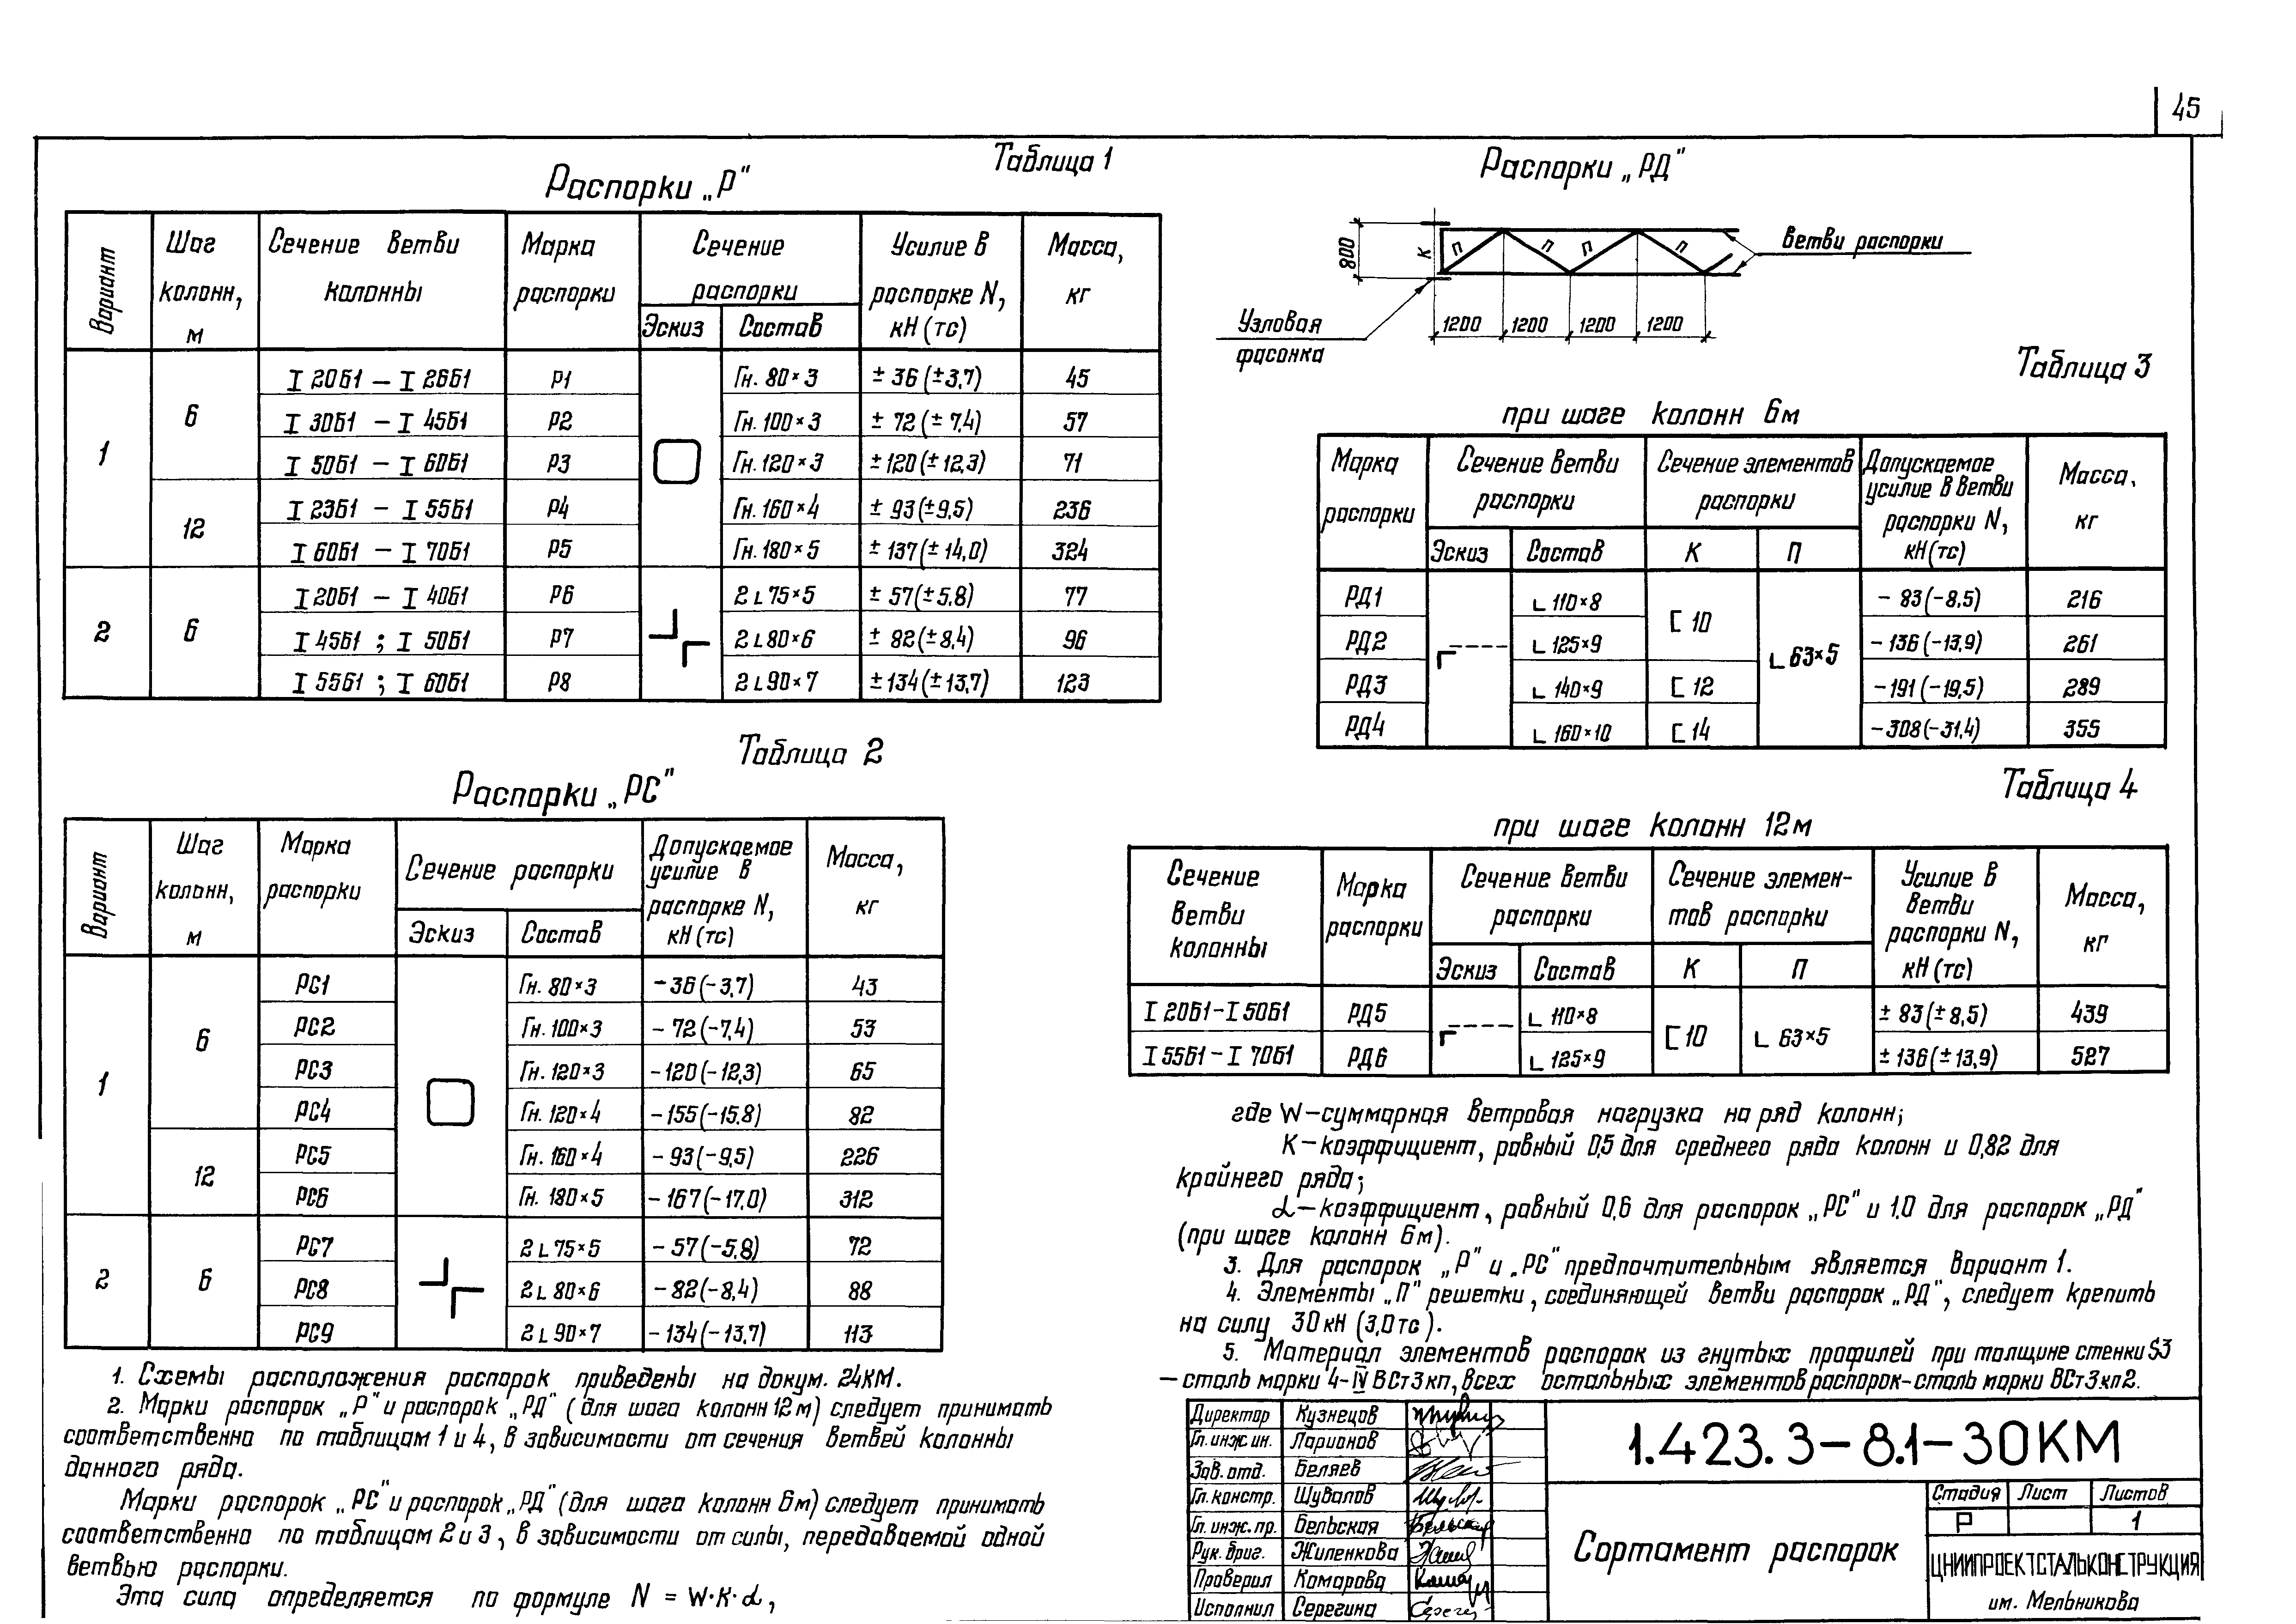 45
Таблица 1
Распорки „Р"
Вариант
Шаг колонн, м
Сечение ветви колонны
Марка распорки
Сечение распорки
Эскиз
Состав
Усилие в распорке N, кН (тс)
Масса, кг
1
6
I 20Б1 – I 26Б1 Р1 Гн. 80×3 ± 36 (±3,7) 45
I 30Б1 – I 45Б1 Р2 Гн. 100×3 ± 72 (± 7,4) 57
I 50Б1 – I 60Б1 Р3 Гн. 120×3 ±120 (±12,3) 71
12
I 23Б1 – I 55Б1 Р4 Гн. 160×4 ± 93 (±9,5) 236
I 60Б1 – I 70Б1 Р5 Гн. 180×5 ± 137 (± 14,0) 324
2
6
I 20Б1 – I 40Б1 Р6 2 L 75×5 ± 57 (±5,8) 77
I 45Б1 ; I 50Б1 Р7 2 L 80×6 ± 82 (±8,4) 96
I 55Б1 ; I 60Б1 Р8 2 L 90×7 ±134 (±13,7) 123
Таблица 2
Распорки „РС"
Вариант
Шаг колонн, м
Марка распорки
Сечение распорки
Эскиз
Состав
Допускаемое усилие в распорке N, кН (тс)
Масса, кг
1
6
РС1 Гн. 80×3 -36 (-3,7) 43
РС2 Гн. 100×3 - 72 (-7,4) 53
РС3 Гн. 120×3 -120 (-12,3) 65
РС4 Гн. 120×4 -155 (-15,8) 82
12
РС5 Гн. 160×4 - 93 (-9,5) 226
РС6 Гн. 180×5 - 167 (-17,0) 312
2
6
РС7 2 L 75×5 - 57 (-5,8) 72
РС8 2 L 80×6 -82 (-8,4) 88
РС9 2 L 90×7 - 134 (-13,7) 113
1. Схемы расположения распорок приведены на докум. 24КМ.
2. Марки распорок „Р" и распорок „РД" (для шага колонн 12 м) следует принимать
соответственно по таблицам 1 и 4, в зависимости от сечения ветвей колонны
данного ряда.
Марки распорок „РС" и распорок „РД" (для шага колонн 6м) следует принимать
соответственно по таблицам 2 и 3, в зависимости от силы, передаваемой одной
ветвью распорки.
Эта сила определяется по формуле N = W·K·α,
Распорки „РД"
800
К
П
П
П
П
ветви распорки
Узловая фасонка
1200
1200
1200
1200
Таблица 3
при шаге колонн 6м
Марка распорки
Сечение ветви распорки
Эскиз
Состав
Сечение элементов распорки
К
П
Допускаемое усилие в ветви распорки N, кН (тс)
Масса, кг
РД1 L 110×8 [ 10 L 63×5 - 83 (-8,5) 216
РД2 L 125×9 - 136 (-13,9) 261
РД3 L 140×9 [ 12 -191 (-19,5) 289
РД4 L 160×10 [ 14 -308 (-31,4) 355
Таблица 4
при шаге колонн 12м
Сечение ветви колонны
Марка распорки
Сечение ветви распорки
Эскиз
Состав
Сечение элемен-
тов распорки
К
П
Усилие в ветви распорки N, кН (тс)
Масса, кг
I 20Б1 – I 50Б1 РД5 L 110×8 [ 10 L 63×5 ± 83 (±8,5) 439
I 55Б1 – I 70Б1 РД6 L 125×9 ± 136 (±13,9) 527
где W – суммарная ветровая нагрузка на ряд колонн;
К – коэффициент, равный 0,5 для среднего ряда колонн и 0,82 для
крайнего ряда;
α – коэффициент, равный 0,6 для распорок „РС" и 1.0 для распорок „РД"
(при шаге колонн 6м).
3. Для распорок „Р" и „РС" предпочтительным является вариант 1.
4. Элементы „П" решетки, соединяющей ветви распорок „РД", следует крепить
на силу 30 кН (3,0 тс).
5. Материал элементов распорок из гнутых профилей при толщине стенки S3
– сталь марки 4-IV ВСт3кп, всех остальных элементов распорок - сталь марки ВСт3кп2.
Директор Кузнецов
Гл. инж. ин. Ларионов
Зав. отд. Беляев
Гл. констр. Шувалов
Гл. инж. пр. Бельская
Рук. бриг. Жиленкова
Проверил Комарова
Исполнил Серегина
1.423.3–8.1–30КМ
Сортамент распорок
Стадия Лист Листов
Р 1
ЦНИИПРОЕКТСТАЛЬКОНСТРУКЦИЯ
им. Мельникова